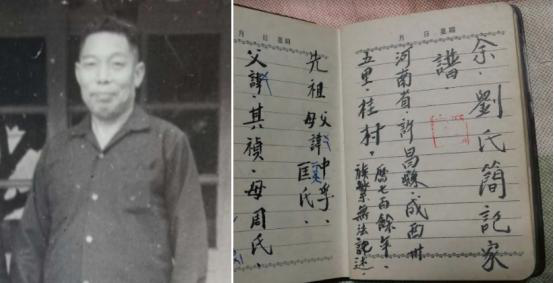 月 日 星期
余．劉氏簡記家
譜．
河南省許昌縣．成西卅
五里．桂村．
歷七百餘年．
族繁無法記述．
月 日 星期
先祖父諱中孚．
母匡氏．
父諱．其禎．母周氏．